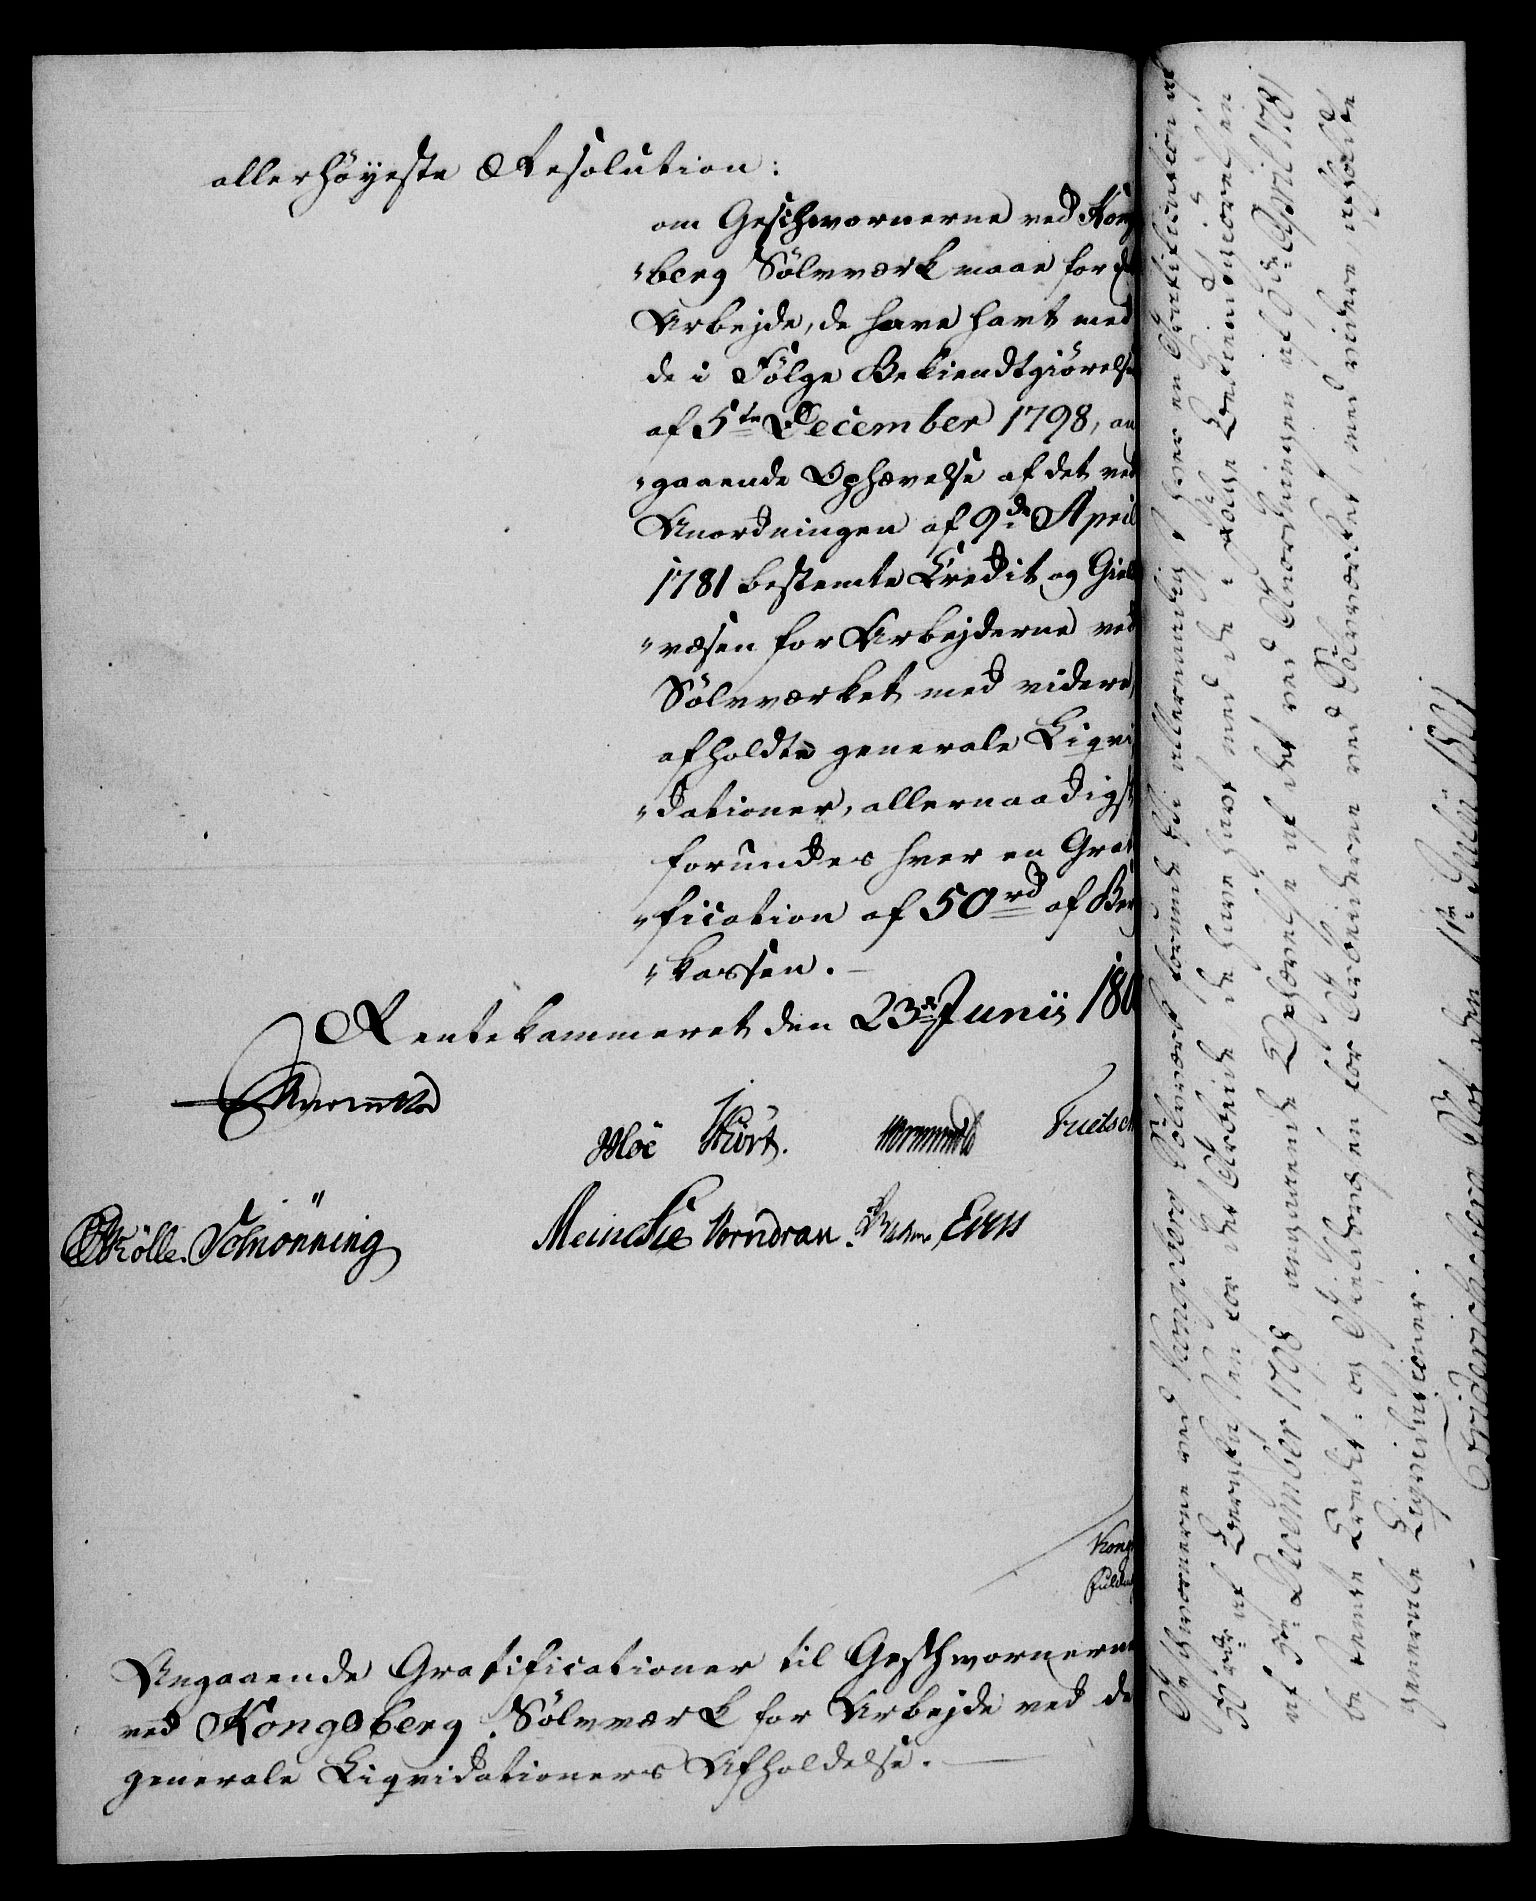 allerhöyeste Resolution:
om Geschwornerne ved Kong
"berg Sölvværk maae for d
Arbejde, de have havt med
de i Fölge Bekiendtgiörelse
af 5te December 1798, an
"gaaende Ophævelse af det ved
Anordningen af 9de April
1781 bestemte Credit og Giel
"væsen for Arbejderne ved
Sölvværket med videre,
afholdte generale Liqvi
"dationer, allernaadigst
forundes hver en Grat
"fication af 50 rd af Ber
"kassen. —
Rentekammeret den 23de Junii 180
Moe Hiört. Wormskiold
Mölle. Schiönning Meincke Vorndran. Evers
Kong
Angaaende Gratificationer til Geschwornerne
ved Kongsberg Sölvværk for Arbejde ved de
generale Liqvidationers Afholdelse. —
Geschwornerne ved Kongsberg Sölvværk forunde Vi allernaadigst hver en Gratification af
50 rdr af Bergkassen for det Arbeide de have havt med de i Fölge Bekiendtgiörelsen
af 5te December 1798, angaaende Ophævelse af det ved Anordningen af 9de April 1781
bestemte Credit- og Gieldvæsen for Arbeiderne ved Sölvværket, med videre, afholdte
generale Liqvidationer.
Friderichsberg Slot den 1te Julii 1801